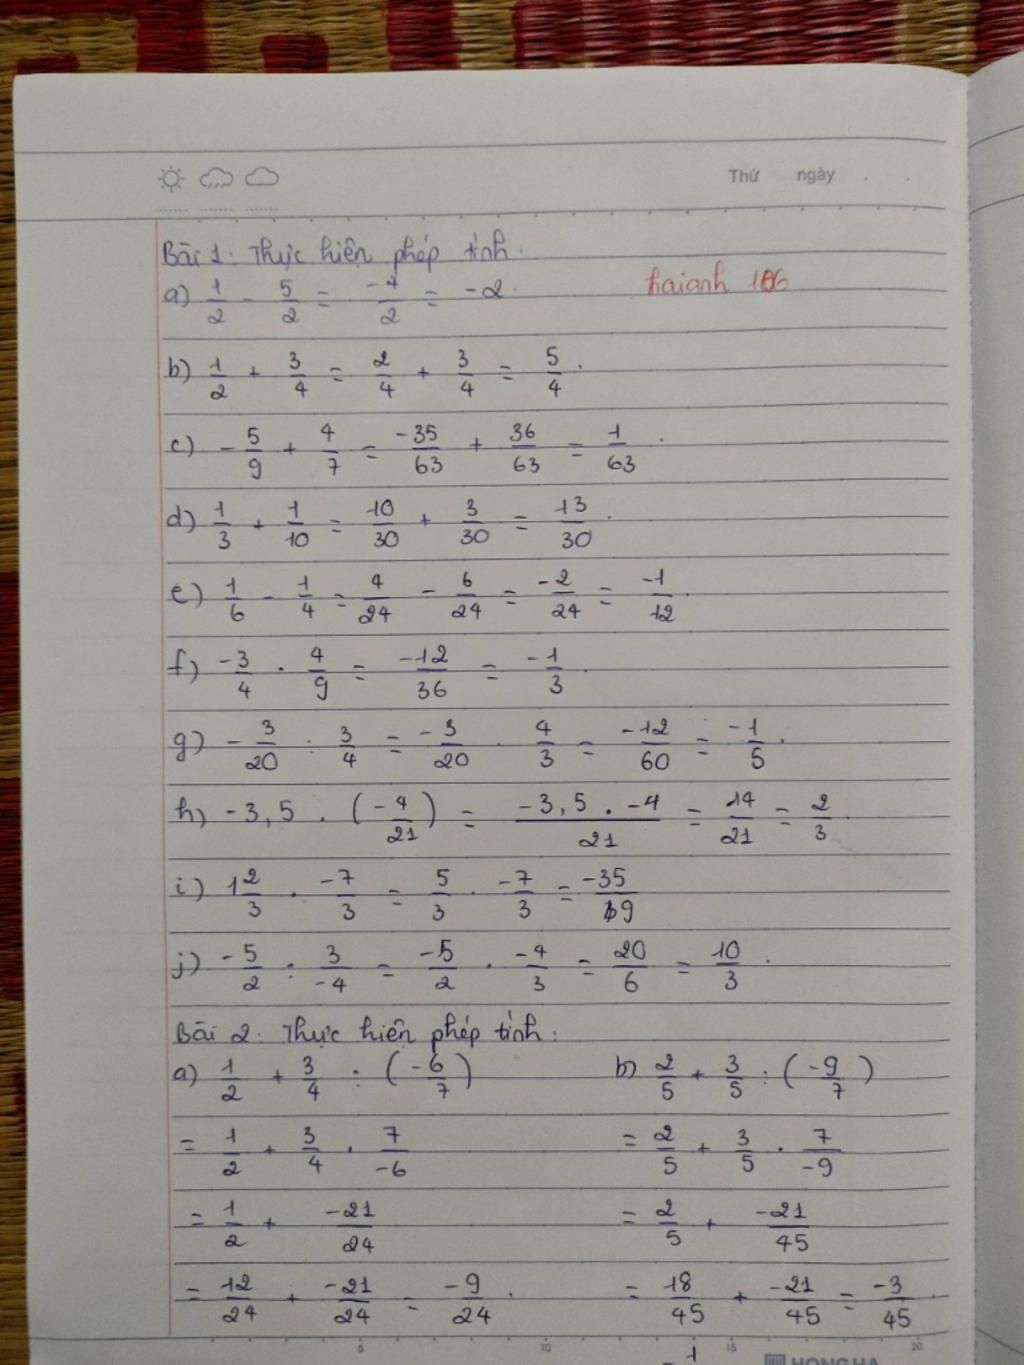 Thứ ngày
Bài 1: Thực hiện phép tính.
a) 1/2 - 5/2 = -4/2 = -2. haianh 106
b) 1/2 + 3/4 = 2/4 + 3/4 = 5/4.
c) -5/9 + 4/7 = -35/63 + 36/63 = 1/63.
d) 1/3 + 1/10 = 10/30 + 3/30 = 13/30.
e) 1/6 - 1/4 = 4/24 - 6/24 = -2/24 = -1/12.
f) -3/4 . 4/9 = -12/36 = -1/3.
g) -3/20 : 3/4 = -3/20 . 4/3 = -12/60 = -1/5.
h) -3,5 . (-4/21) = -3,5 . -4/21 = 14/21 = 2/3.
i) 1 2/3 . -7/3 = 5/3 . -7/3 = -35/9
j) -5/2 : 3/-4 = -5/2 . -4/3 = 20/6 = 10/3.
Bài 2: Thực hiện phép tính:
a) 1/2 + 3/4 : (-6/7) b) 2/5 + 3/5 : (-9/7)
= 1/2 + 3/4 . 7/-6 = 2/5 + 3/5 . 7/-9
= 1/2 + -21/24 = 2/5 + -21/45
= 12/24 + -21/24 = -9/24. = 18/45 + -21/45 = -3/45.
5 10 15 20
HONG HA